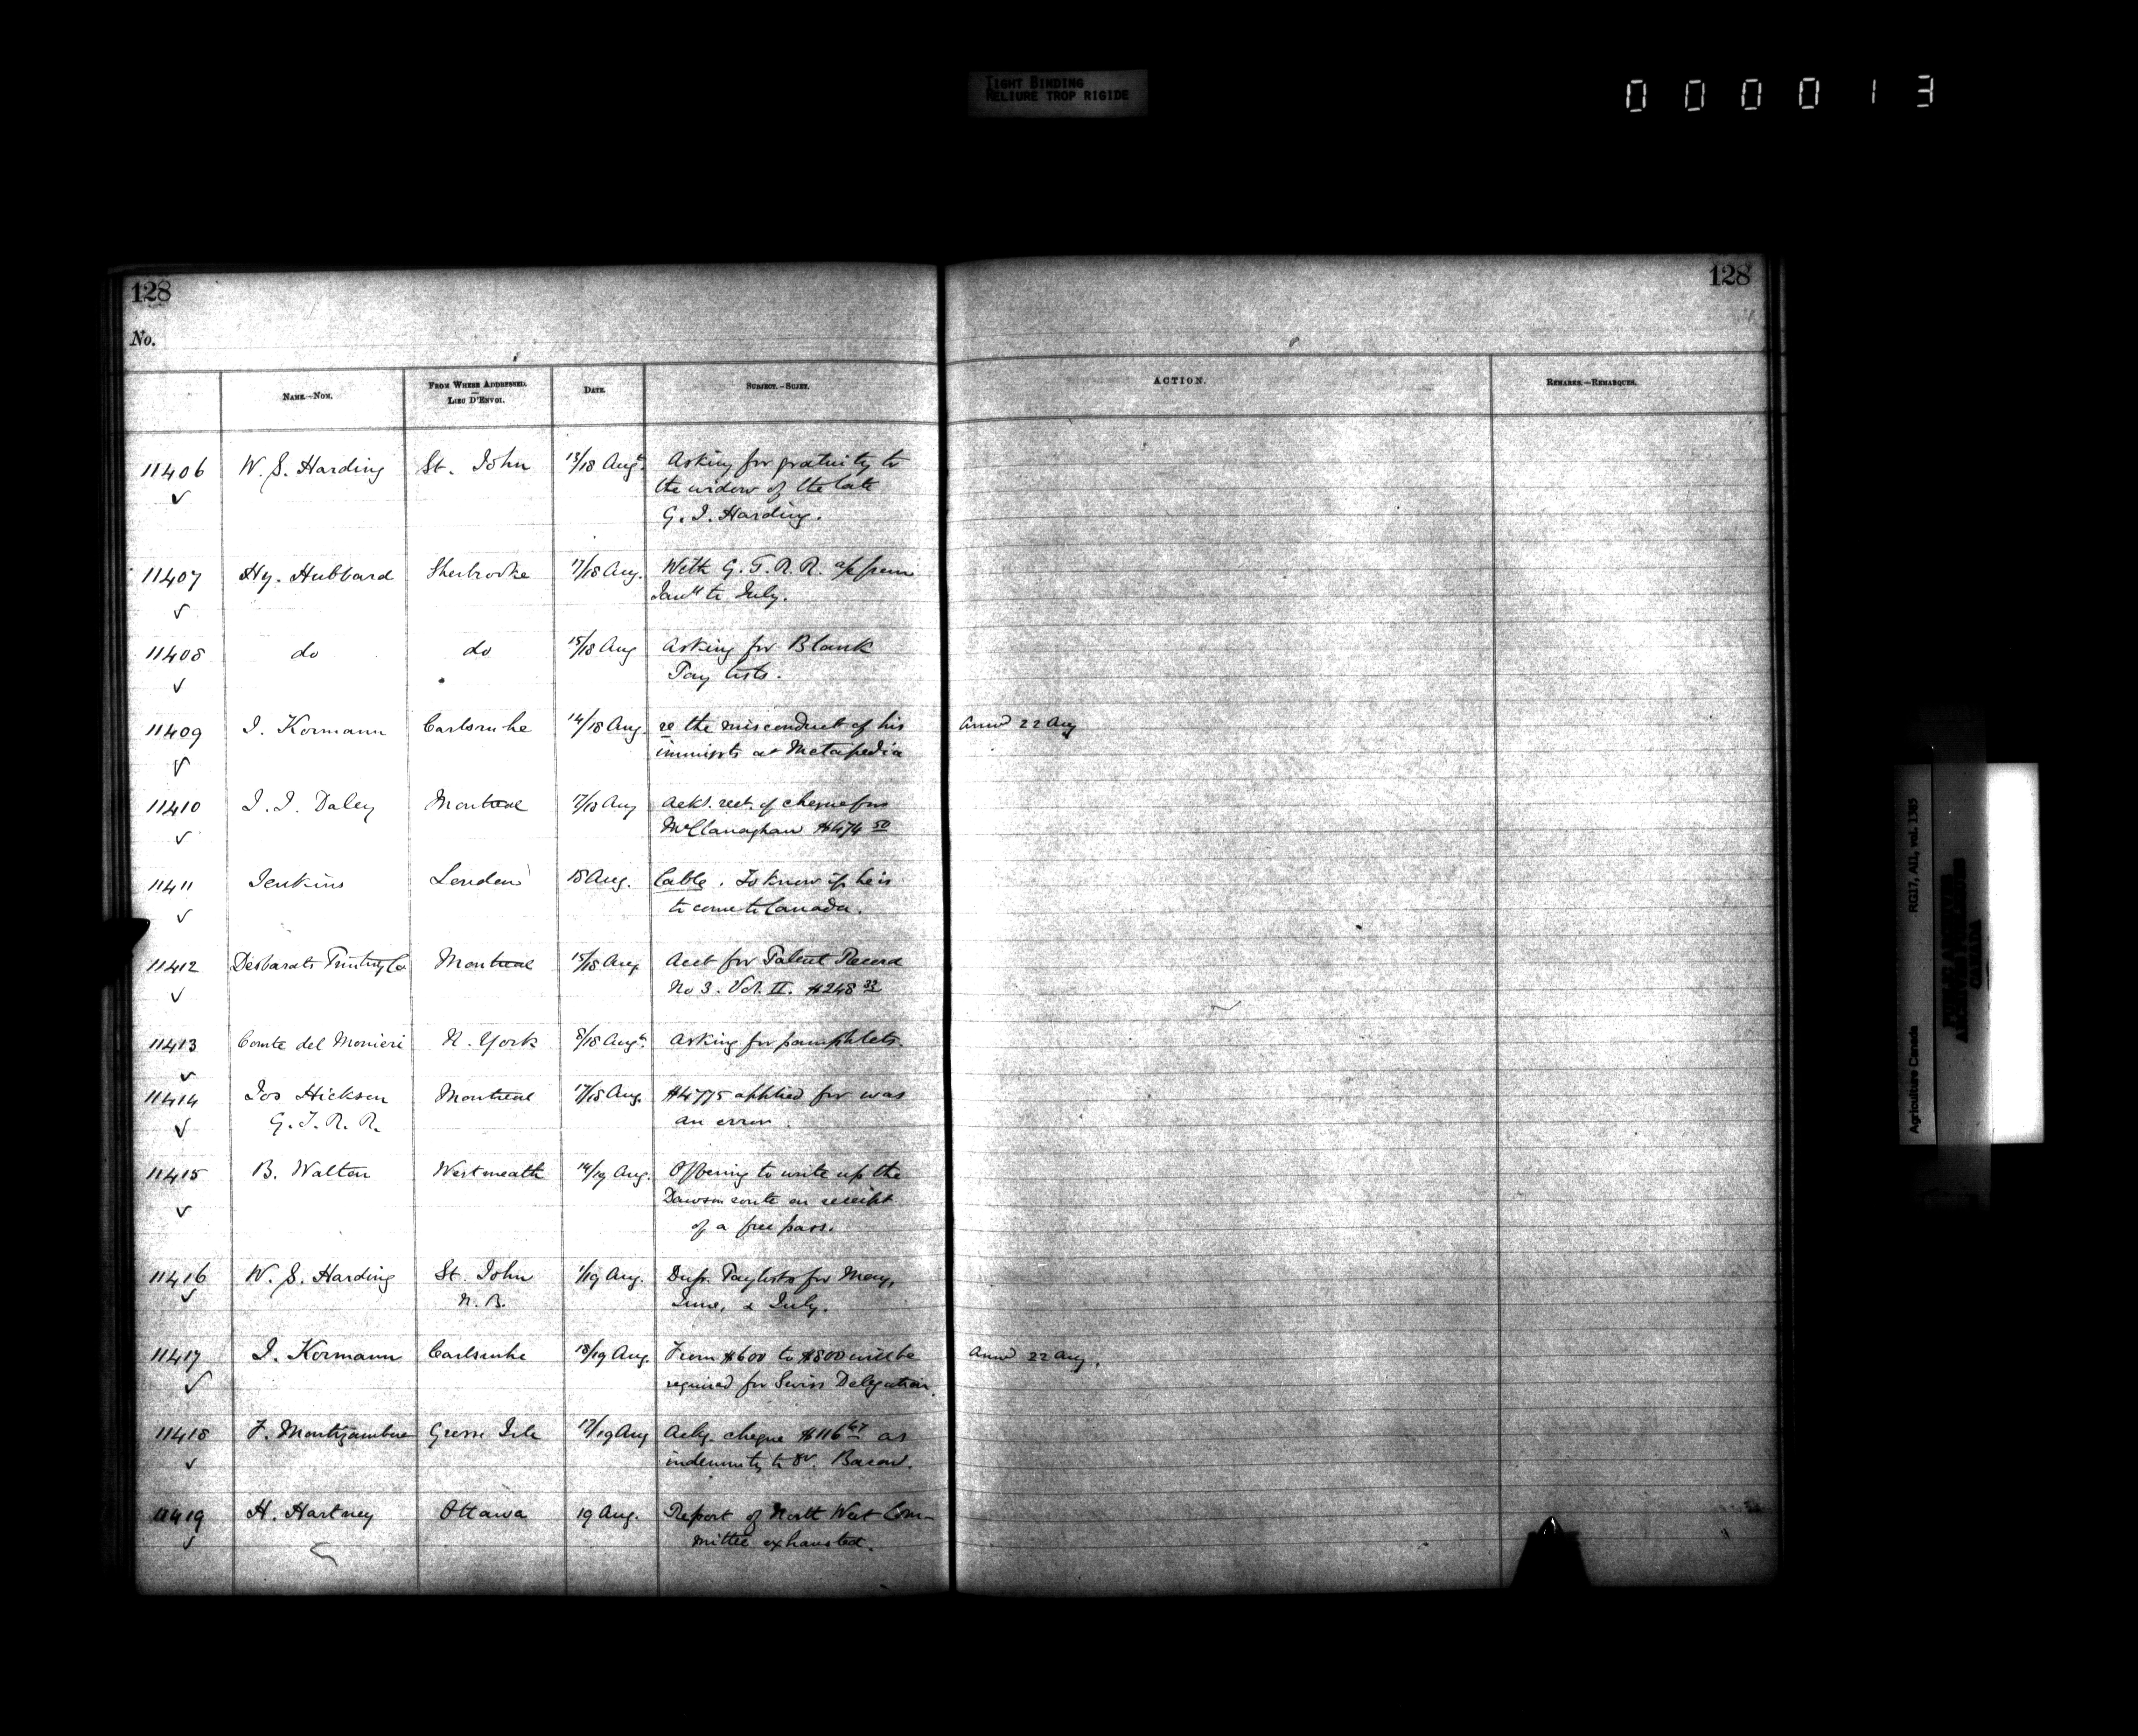 TIGHT BINDING
RELIURE TROP RIGIDE
000013
128
128
No.
NAME.—NOM.
FROM WHERE ADDRESSED.
LIEU D'ENVOI.
DATE.
SUBJECT.—SUJET.
ACTION.
REMARKS.—REMARQUES.
11406 W. S. Harding St. John 13/18 Augt. Asking for gratuity to
the widow of the late
G. J. Harding.
11407 Hy. Hubbard Sherbrooke 17/18 Aug. With G. T. R. R. a/c from
Jany to July.
11408 do do 15/18 Aug Asking for Blank
Pay lists.
11409 J. Kormann Carlsruhe 14/18 Aug. re the misconduct of his Answd 22 Aug
immigts at Metapedia
11410 J. J. Daley Montreal 17/18 Aug Ackt. rect. of cheque for
McClanaghan $474 50
11411 Jenkins London 18 Aug. Cable. To know if he is
to come to Canada.
11412 Desbarats Printing Co Montreal 15/18 Aug. Acct for Patent Record
No 3. Vol. II. $248 33
11413 Comte del Monieri N. York 8/18 Augt. Asking for pamphlets.
11414 Jos Hickson Montreal 17/18 Aug. $4775 applied for was
G. T. R. R. an error.
11415 B. Walton Westmeath 14/19 Aug. Offering to write up the
Dawson route on receipt
of a free pass.
11416 W. S. Harding St. John 1/19 Aug. Dup. Paylists for May,
N. B. June, & July.
11417 J. Kormann Carlsruhe 18/19 Aug. From $600 to $800 will be Answd 22 Aug.
required for Swiss Delegation.
11418 F. Montizambert Grosse Isle 17/19 Aug Ackg. cheque $116 67 as
indemnity to
11419 H. Hartney Ottawa 19 Aug. Report of North West Com-
mittee exhausted.
Agriculture Canada RG17, AII, vol. 1385
PUBLIC ARCHIVES
ARCHIVES PUBLIQUES
CANADA